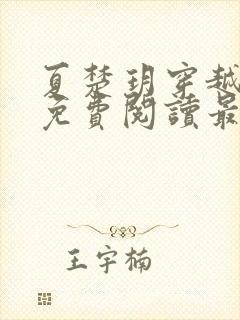 夏楚玥穿越
免費閱讀最
王宇楠